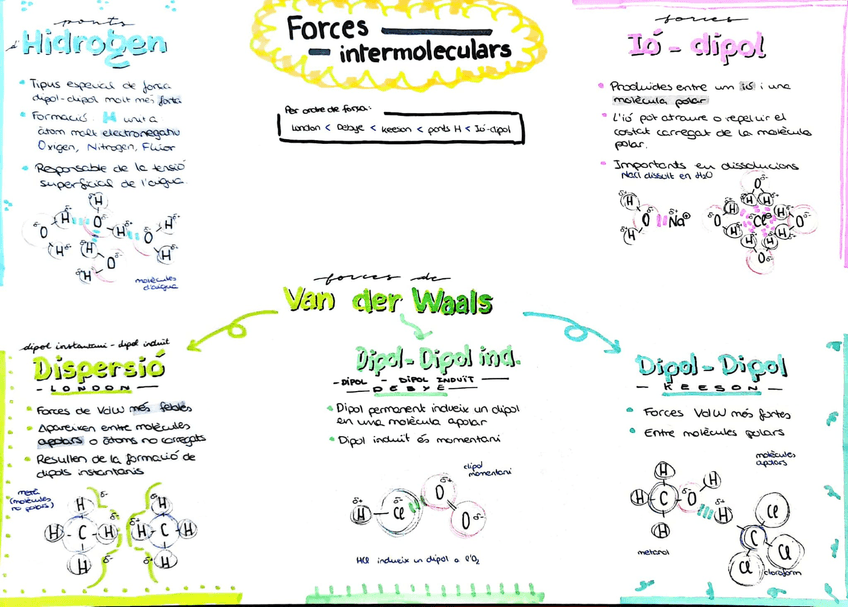 Forces
intermoleculars
Per ordre de força:
London < Debye < Keeson < ponts H < Ió-dipol
ponts
Hidrogen
Tipus especial de força
dipol-dipol molt més forta
Formació: H unit a
àtom molt electronegatiu
Oxigen, Nitrogen, Flúor
Responsable de la tensió
superficial de l'aigua.
molècules
d'aigua
forces
Ió - dipol
Produïdes entre un ió i una
molècula polar
L'ió pot atraure o repel·lir el
costat carregat de la molècula
polar.
Importants en dissolucions
NaCl dissolt en H₂O
Na⊕
Cl⊖
forces de
Van der Waals
dipol instantani - dipol induït
Dispersió
- LONDON -
Forces de VdW més febles
Apareixen entre molècules
apolars o àtoms no carregats
Resulten de la formació de
dipols instantanis
metà
(molècules
no polars)
Dipol - Dipol ind.
- DIPOL - DIPOL INDUÏT -
DEBYE
Dipol permanent indueix un dipol
en una molècula apolar
Dipol induït és momentani
dipol
momentani
H Cl O O
HCl indueix un dipol a l'O₂
Dipol - Dipol
- KEESON -
Forces VdW més fortes
Entre molècules polars
molècules
apolars
metanol
cloroform